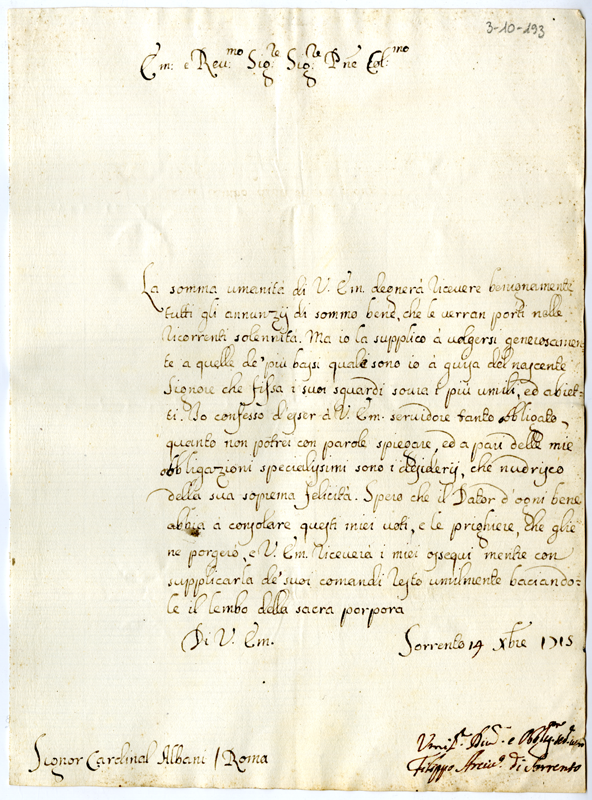 3-10-193
Em: e Reu:mo Sig:re Sig:re Pñe Col:mo
La somma umanità di V. Em. degnerà riceuere benignamente
tutti gli annunzij di sommo bene, che le verran porti nelle
ricorrenti solennità. Ma io la supplico à volgersi generosamen=
te a quelle de' più bassi quale sono io à guisa del nascente
Signore che fissa i suoi sguardi soura i più umili, ed abiet=
ti. Io confesso d'esser à V. Em. seruidore tanto obligato,
quanto non potrei con parole spiegare, ed a pari delle mie
obbligazioni specialissimi sono i desiderij, che nudrisco
della sua soprema felicità. Spero che il Dator d'ogni bene
abbia à consolare questi miei uoti, e le prighiere, che glie
ne porgerò, e V. Em. riceuerà i miei ossequi mentre con
supplicarla de' suoi comandi resto umilmente baciando=
le il lembo della sacra porpora
Di V. Em.
Sorrento 14 Xbre 1715
Signor Cardinal Albani / Roma
Filippo Arciu.o di Sorrento